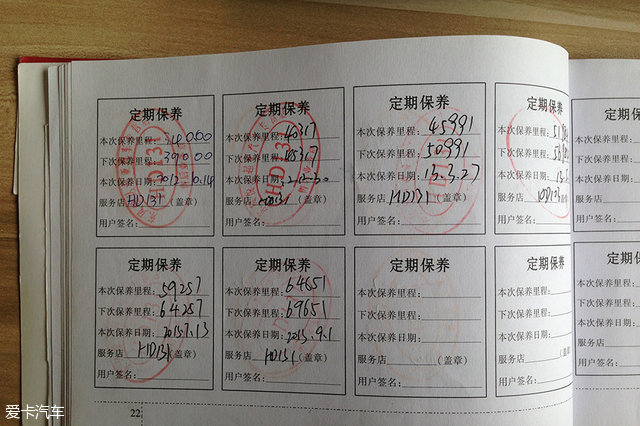 定期保养
本次保养里程: 34000
下次保养里程: 39000
本次保养日期:
服务店 HD131 (盖章)
用户签名:
定期保养
本次保养里程: 40317
下次保养里程: 45317
本次保养日期:
服务店 HD131 (盖章)
用户签名:
定期保养
本次保养里程: 45991
下次保养里程: 50991
本次保养日期: 15.3.27
服务店 HD131 (盖章)
用户签名:
定期保养
本次保养里程:
下次保养里程:
本次保养日期:
服务店 HD131
用户签名:
定期保养
本次保养里程: 59257
下次保养里程: 64257
本次保养日期: 2015.7.13
服务店 HD131 (盖章)
用户签名:
定期保养
本次保养里程: 64651
下次保养里程: 69651
本次保养日期: 2015.9.1
服务店 HD131 (盖章)
用户签名:
定期保养
本次保养里程:
下次保养里程:
本次保养日期:
服务店 (盖章)
用户签名:
定期保养
本次保养里程:
下次保养里程:
本次保养日期:
服务店 (盖章)
用户签名:
本次保养里程:
下次保养里程:
本次保养日期:
服务店
用户签名:
本次保养里程
下次保养里程
本次保养日期
服务店
用户签名:
22
爱卡汽车